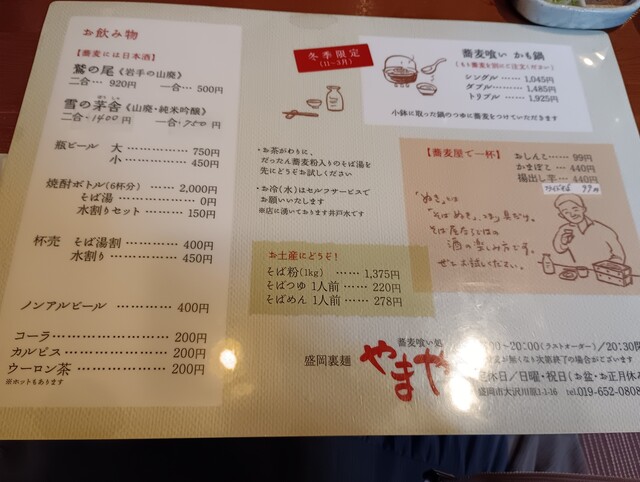 お飲み物
【蕎麦には日本酒】
鷲の尾《岩手の山廃》
二合… 920円 一合… 500円
雪の茅舎《山廃・純米吟醸》
二合・1400円 一合・750円
瓶ビール 大 …………… 750円
小 …………… 450円
焼酎ボトル(6杯分) …… 2,000円
そば湯 …………… 0円
水割りセット ……… 150円
杯売 そば湯割 ………… 400円
水割り …………… 450円
ノンアルビール …………… 400円
コーラ…………………… 200円
カルピス ……………… 200円
ウーロン茶 …………… 200円
※ホットもあります
冬季限定
(11~3月)
蕎麦喰い かも鍋
(もり蕎麦を別にご注文ください)
シングル …… 1,045円
ダブル………… 1,485円
トリプル ……… 1,925円
小鉢に取った鍋のつゆに蕎麦をつけていただきます
・お茶がわりに、
だったん蕎麦粉入りのそば湯を
先にどうぞお試しください
・お冷(水)はセルフサービスで
お願いいたします
※店に湧いております井戸水です
【蕎麦屋で一杯】
おしんこ…… 99円
かまぼこ …… 440円
揚出し芋 …… 440円
フライドそば 99円
「ぬき」は
そばぬき、つまり具だけ。
そば屋ならではの
酒の楽しみ方です。
ぜひお試しください。
お土産にどうぞ!
そば粉(1kg) …… 1,375円
そばつゆ 1人前 …… 220円
そばめん 1人前 …… 278円
盛岡裏麺
蕎麦喰い処
やまや
:00~20:00(ラストオーダー)/20:30閉
休日/日曜・祝日(お盆・お正月休み
盛岡市大沢川原1-1-16 tel.019-652-0808